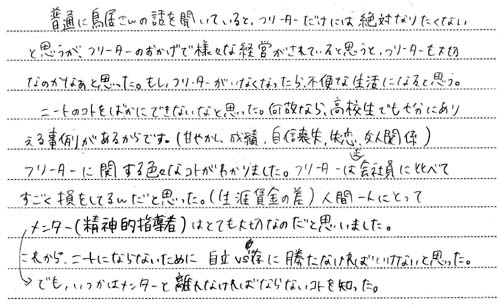 普通に鳥居さんの話を聞いていると、フリーターだけには絶対なりたくない
と思うが、フリーターのおかげで様々な経営がされていると思うと、フリーターも大切
なのかなぁと思った。もし、フリーターがいなくなったら、不便な生活になると思う。
ニートのコトをばかにできないなと思った。何故なら、高校生でも十分にあり
える事例があるからです。(甘やかし、成績、自信喪失、失恋、友人関係)
フリーターに関する色々なコトがわかりました。フリーターは会社員に比べて
すごく損をしてるんだと思った。(生涯賃金の差) 人間一人にとって
メンター(精神的指導者)はとても大切なのだと思いました。
これから、ニートにならないために 自立vs依存に勝たなければいけないと思った。
でも、いつかはメンターと離れなければならないコトを知った。